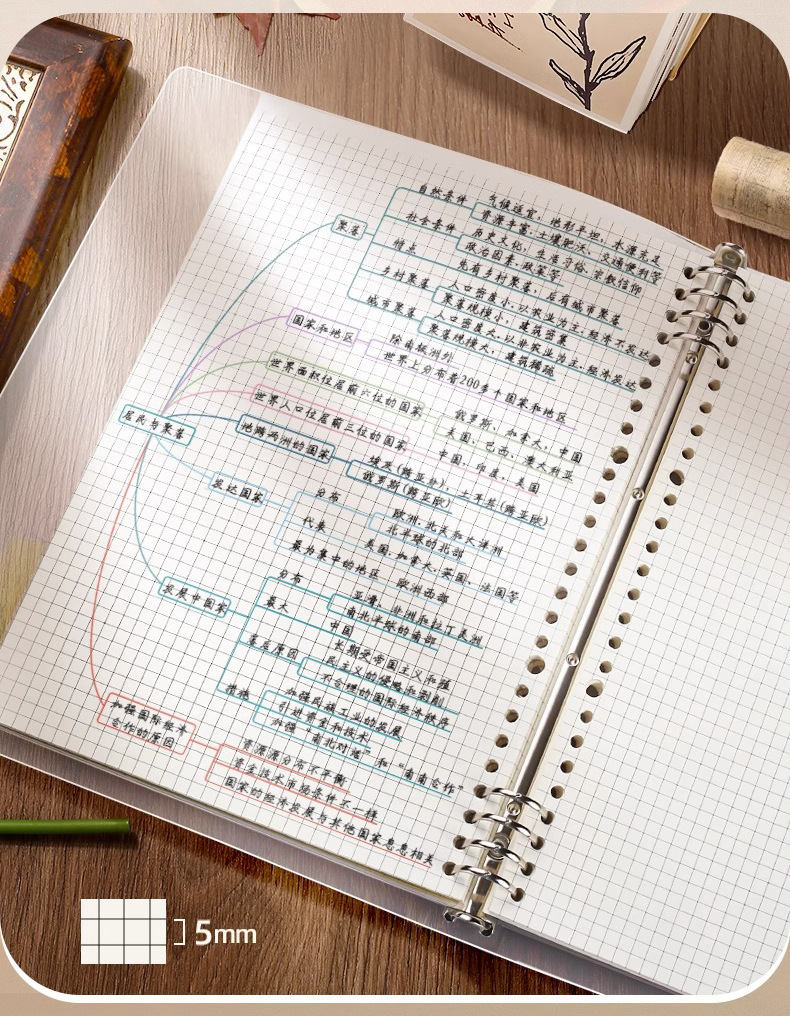 自然条件
气候适宜，地形平坦，水源充足
资源丰富，土壤肥沃，交通便利等
社会条件
历史文化，生活习俗，宗教信仰
政治因素，政策等
聚落
特点
先有乡村聚落，后有城市聚落
乡村聚落
人口密度小，以农业为主，经济不发达
聚落规模小，建筑密集
城市聚落
人口密度大，以非农业为主，经济发达
聚落规模大，建筑稀疏
国家和地区
除南极洲外
世界上分布着200多个国家和地区
世界面积位居前六位的国家
俄罗斯、加拿大、中国
美国、巴西、澳大利亚
世界人口位居前三位的国家
中国、印度、美国
居民与聚落
地跨两洲的国家
埃及(跨亚非)、土耳其(跨亚欧)
俄罗斯(跨亚欧)
发达国家
分布
欧洲、北美和大洋洲
北半球的北部
代表
美国、加拿大、英国、法国等
最为集中的地区
欧洲西部
发展中国家
分布
亚洲、非洲和拉丁美洲
南北半球的南部
最大
中国
落后原因
长期受帝国主义和殖
民主义的侵略和剥削
不合理的国际经济秩序
措施
加强民族工业的发展
引进资金和技术
加强“南北对话”和“南南合作”
加强国际经济
合作的原因
资源分布不平衡
资金技术市场条件不一样
国家的经济发展与其他国家息息相关
5mm